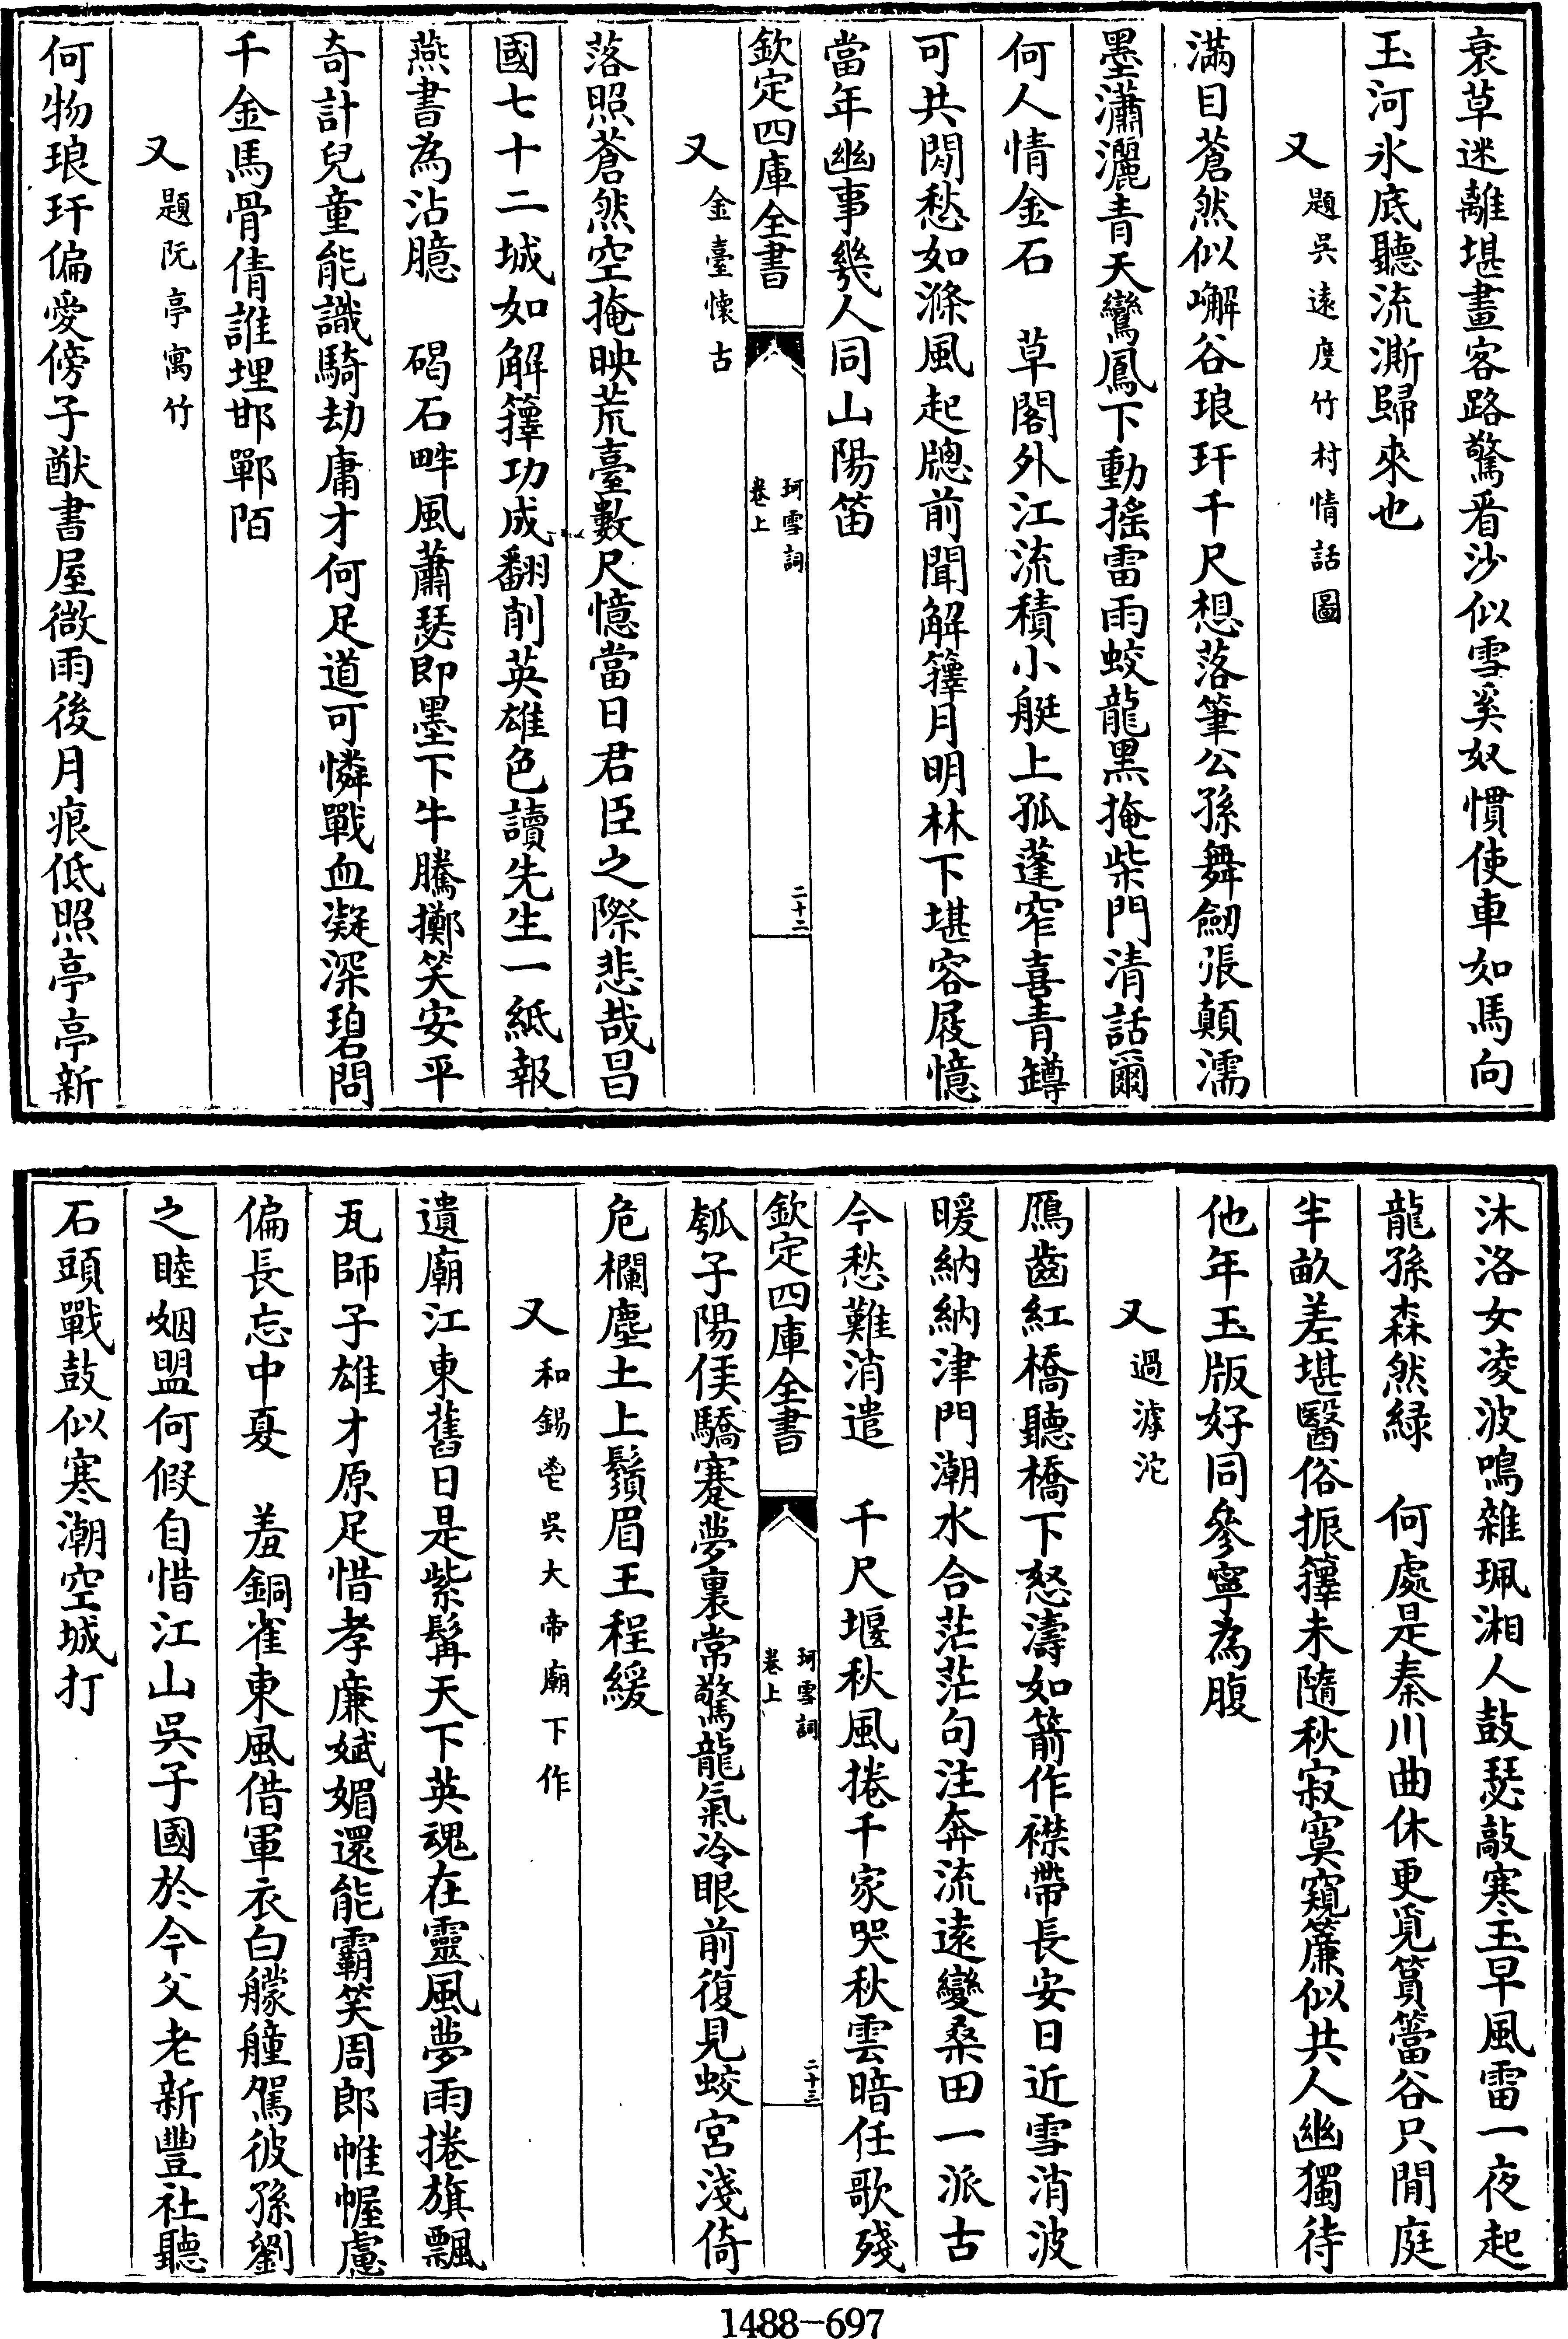 衰草迷離堪畫客路驚看沙似雪奚奴慣使車如馬向
玉河氷底聽流澌歸來也
又題吳遠度竹村情話圖
滿目蒼然似嶰谷琅玕千尺想落筆公孫舞劒張顛濡
墨瀟灑青天鸞鳳下動搖雷雨蛟龍黑掩柴門清話爾
何人情金石　草閣外江流積小艇上孤蓬窄喜青罇
可共閒愁如滌風起牕前聞解籜月明林下堪容屐憶
當年幽事幾人同山陽笛
欽定四庫全書
珂雪詞
卷上
二十二
又金臺懷古
落照蒼然空掩映荒臺數尺憶當日君臣之際悲哉昌
國七十二城如解籜功成翻削英雄色讀先生一紙報
燕書為沾臆　碣石畔風蕭瑟即墨下牛騰擲笑安平
奇計兒童能識騎劫庸才何足道可憐戰血凝深碧問
千金馬骨倩誰埋邯鄲陌
又題阮亭寓竹
何物琅玕偏愛傍子猷書屋微雨後月痕低照亭亭新
沐洛女凌波鳴雜珮湘人鼓瑟敲寒玉早風雷一夜起
龍孫森然緑　何處是秦川曲休更覓篔簹谷只閒庭
半畝差堪醫俗振籜未隨秋寂寞窺簾似共人幽獨待
他年玉版好同參寧為腹
又過滹沱
鴈齒紅橋聽橋下怒濤如箭作襟帶長安日近雪消波
暖納納津門潮水合茫茫句注奔流遠變桑田一派古
今愁難消遣　千尺堰秋風捲千家哭秋雲暗任歌殘
欽定四庫全書
珂雪詞
卷上
二十三
瓠子陽侯驕蹇夢裏常驚龍氣冷眼前復見蛟宮淺倚
危欄塵土上鬚眉王程緩
又和錫鬯吳大帝廟下作
遺廟江東舊日是紫髯天下英魂在靈風夢雨捲旗飄
瓦師子雄才原足惜孝廉娬媚還能霸笑周郎帷幄慮
偏長忘中夏　羞銅雀東風借軍衣白艨艟駕彼孫劉
之睦姻盟何假自惜江山吳子國於今父老新豐社聽
石頭戰鼓似寒潮空城打
1488-697